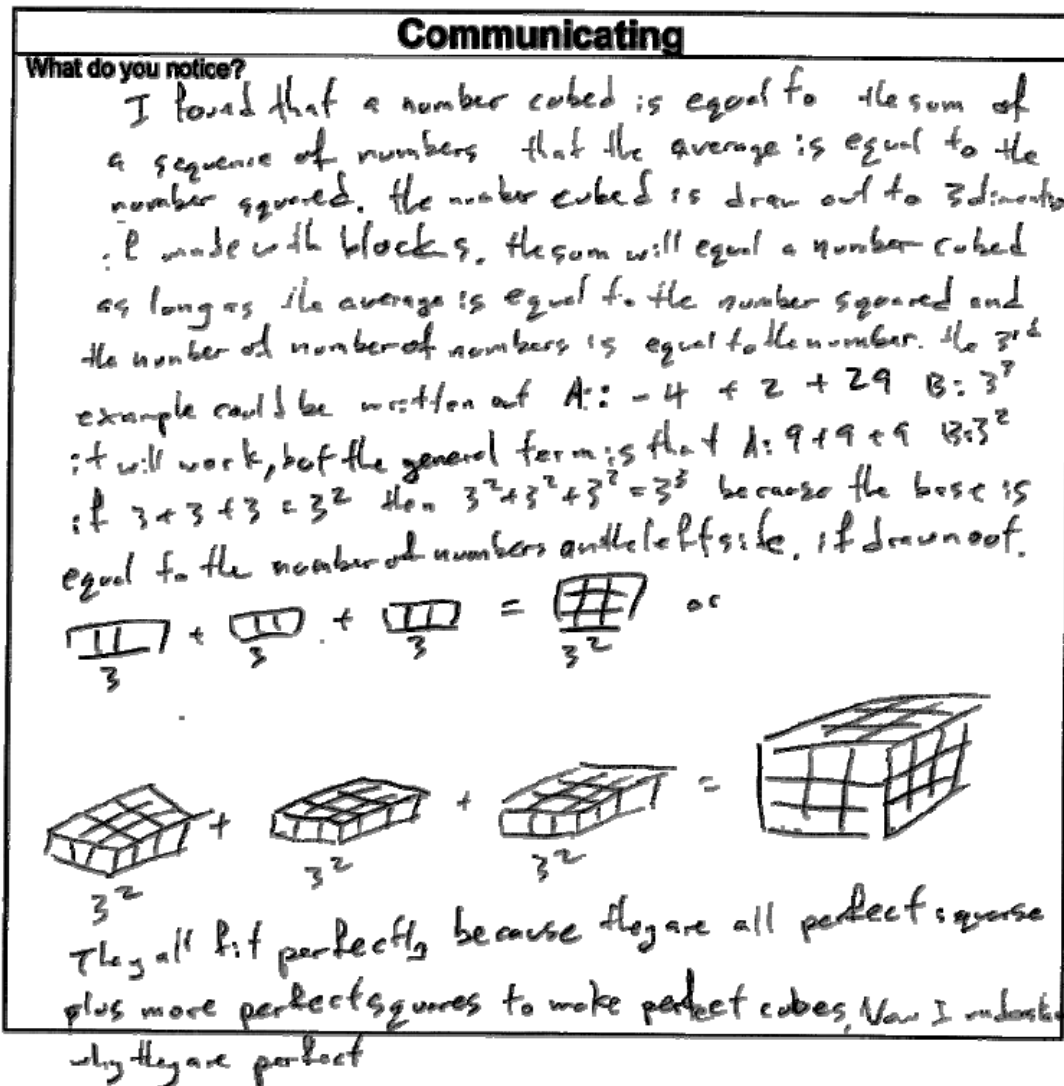 Communicating
What do you notice?
I found that a number cubed is equal to the sum of
a sequence of numbers that the average is equal to the
number squared. the number cubed is draw out to 3dimentio
if made with blocks. the sum will equal a number cubed
as long as the average is equal to the number squared and
the number of number of numbers is equal to the number. the 3rd
example could be written out A: -4 + 2 + 29 B: 3³
it will work, but the general form is that A: 9+9+9 B: 3²
if 3+3+3 = 3² then 3²+3²+3² = 3³ because the base is
equal to the number of numbers and the left side. if drawn out.
+ + = or
3 3 3 3²
+ + =
3² 3² 3²
They all fit perfectly because they are all perfect squerse
plus more perfect squares to make perfect cubes. Now I understa
why they are perfect